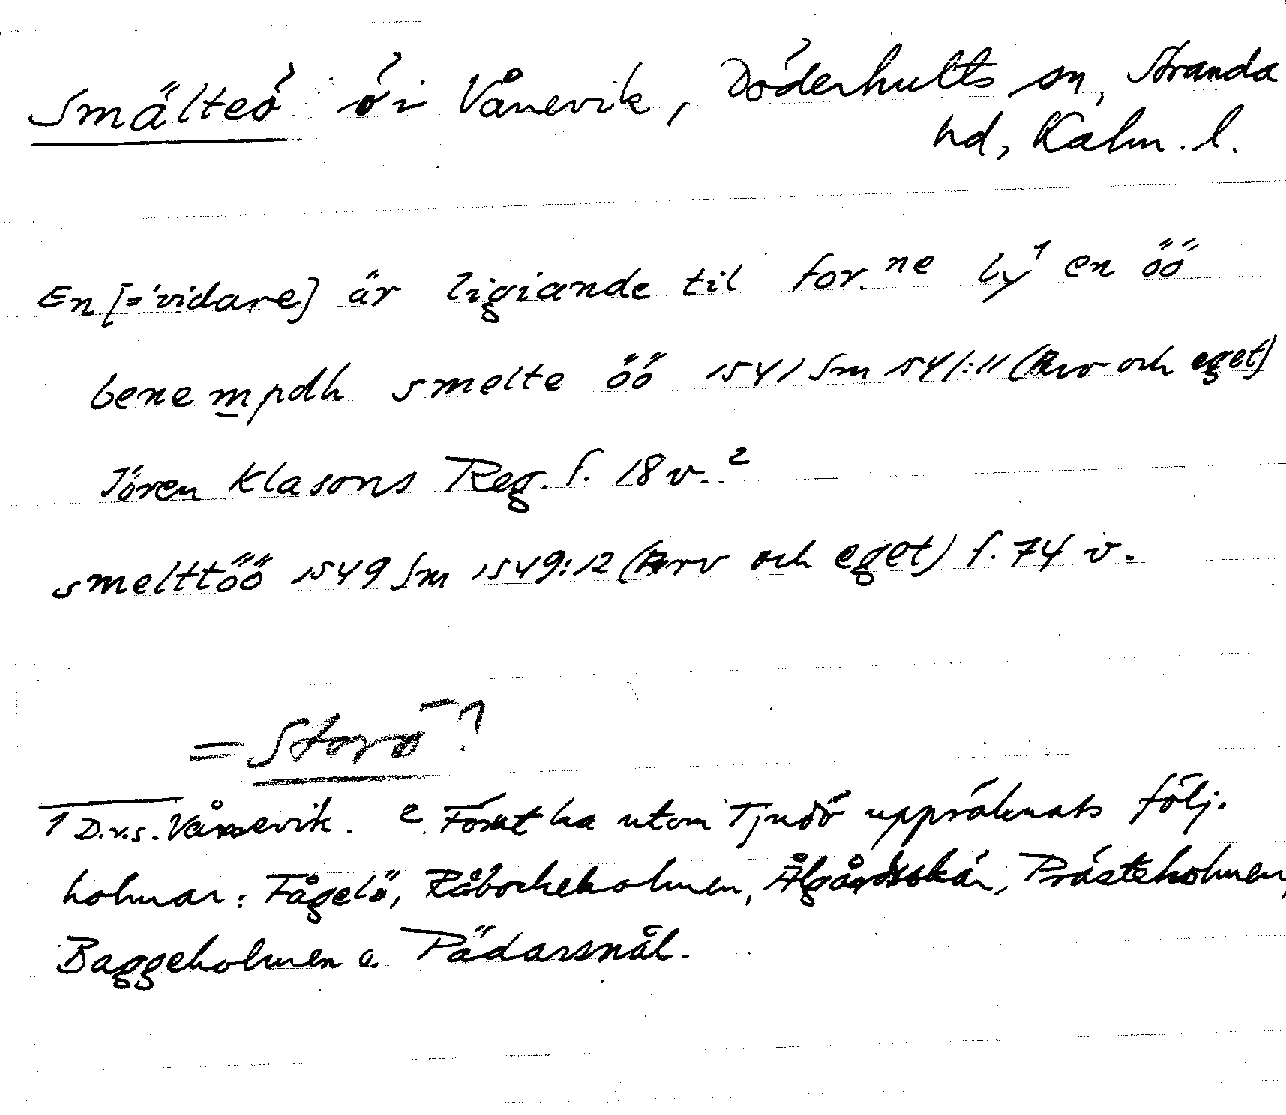 Smälteö ö i Vånevik, Döderhults sn, Stranda
hd, Kalm. l.
En [='vidare] är ligiande til for.ne by1 en öö
bene mpdh smelte öö 1541 Sm 1541:11 (Arv och eget)
Jören Klasons Reg. f. 18 v.2
smelttöö 1549 Sm 1549:12 (Arv och eget) f. 74 v.
= Storö ?
1 D.v.s. Vånevik. 2 Förut ha utom Tjudö uppräknats följ.
holmar: Fågelö, Råbockeholmen, Älgårdsskär, Prästeholmen,
Baggeholmen o. Pädarsnål.